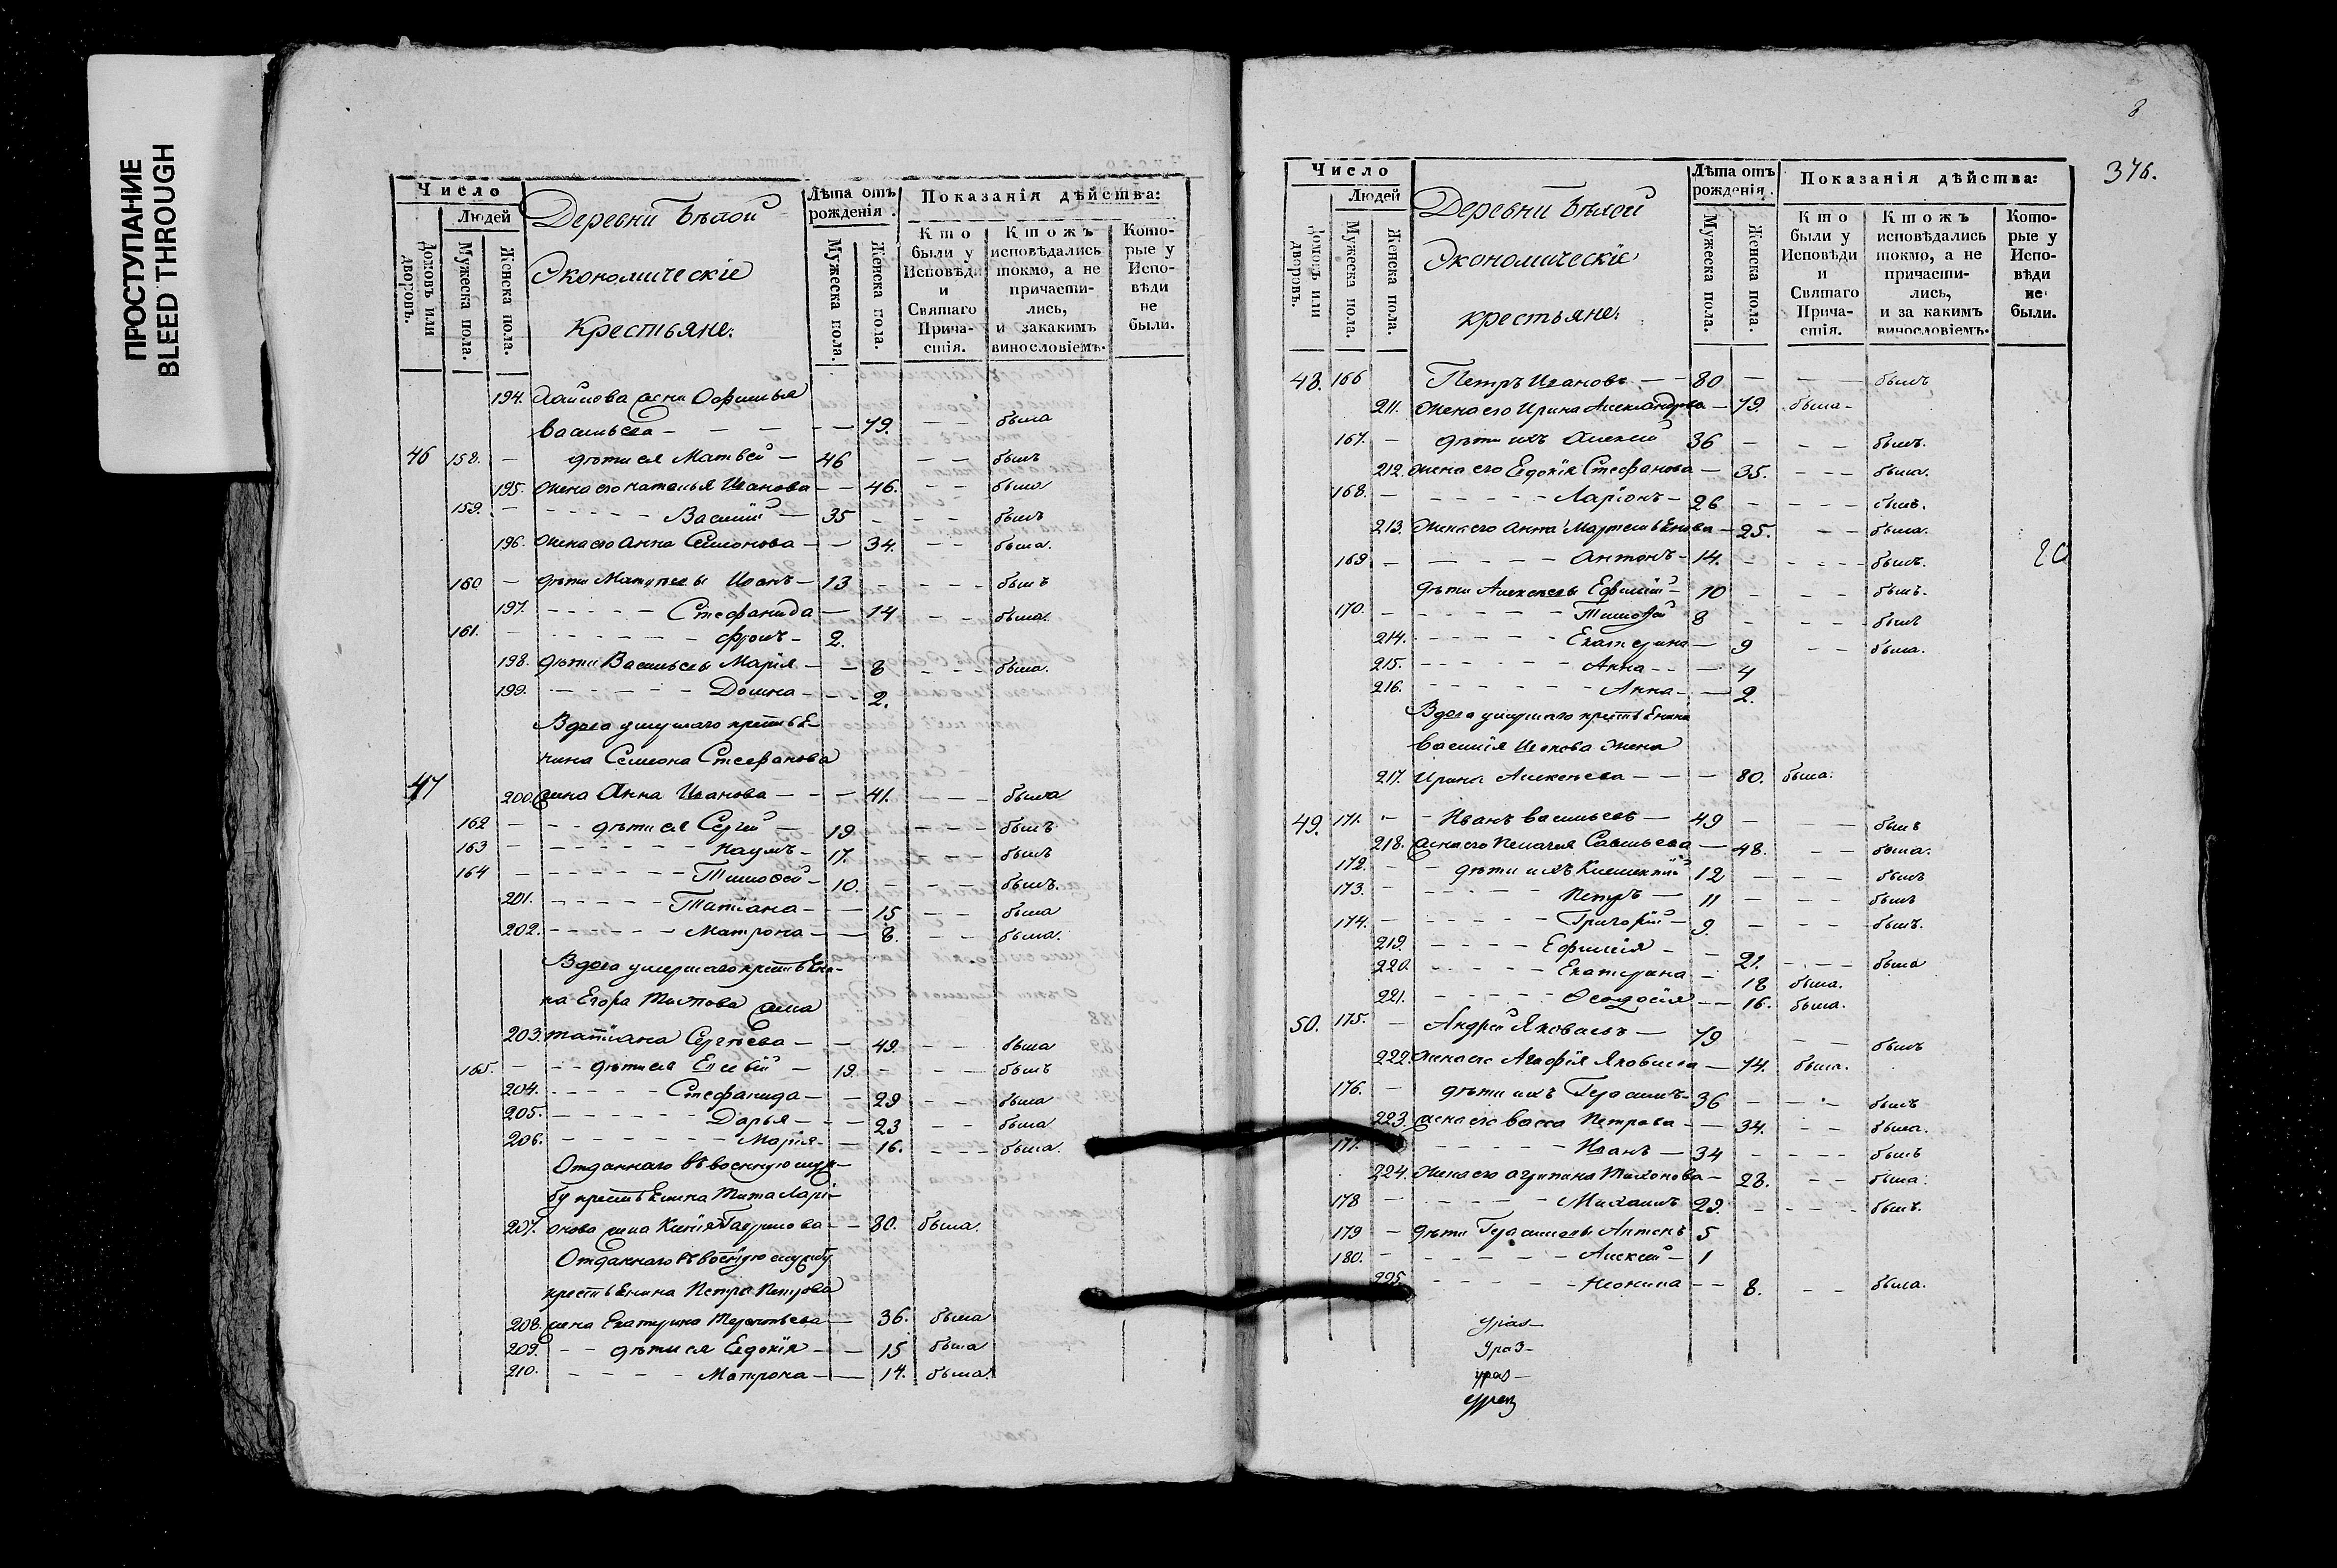 ПРОСТУПАНИЕ
BLEED THROUGH
Число
Людей
Домовъ или дворовъ.
Мужеска пола.
Женска пола.
Деревни Бѣлой
Экономическіе
Крестьяне.
Лѣта отъ рожденія.
Мужеска пола.
Женска пола.
Показанія дѣйства:
Кто были у Исповѣди и Святаго Причастія.
Ктожъ исповѣдались токмо, а не причастились, и закакимъ винословіемъ.
Которые у Исповѣди не были.
194. жена Офимья
васильева — 79. была
46 158. дѣти ея Матвей — 46 — былъ
195. жена его наталья Иванова — 46. — была
159. Василій — 35 — былъ
196. жена его Анна Семионова — 34. — была.
160 — дѣти Матвѣевы Иванъ — 13 — былъ
197. Стефанида — 14 — была.
161. фролъ — 2.
198. дѣти Васильевы Марія — 8 — была.
199. Домна — 2.
Вдова умершаго крестьѣ-
нина Семиона Стефанова
47 200. жена Анна Иванова — 41. — была
162 — дѣти ея Сергей — 19 — былъ
163 — наумъ — 17. — былъ
164 — Тимофей — 10. — былъ.
201. Татіана — 15 — была
202. Матрона — 8. — была.
Вдова умершаго крестьѣни-
на Егора Титова жена
203. татіана Сергѣева — 49. — была
165. — дѣти ея Елевѳій — 19. — былъ
204. Стефанида — 29 — была
205. Дарья — 23 — была
206. Марія — 16. — была.
Отданнаго въ военную служ-
бу крестьѣнина Тита Ларі-
207. онова жена Гаврилова — 80. была.
Отданнаго въ военную службу
крестьѣнина Петра Петрова
208. жена Екатерина Терентьева — 36. была
209. — дѣти ея Евдокія — 15 была
210. Матрона — 14. была.
8
376.
Число
Людей
Домовъ или дворовъ.
Мужеска пола.
Женска пола.
Деревни Бѣлой
Экономическіе
крестьяне.
Лѣта отъ рожденія.
Мужеска пола.
Женска пола.
Показанія дѣйства:
Кто были у Исповѣди и Святаго Причастія.
Ктожъ исповѣдались токмо, а не причастились, и за какимъ винословіемъ.
Которые у Исповѣди не были.
48. 166 Петръ Ивановъ — 80 — былъ
211. жена его Ирина Александрова — 79. была
167. — дѣти ихъ Алексей 36 — былъ.
212. жена его Евдокія Стефанова — 35. — была.
168. — Ларіонъ — 26 — былъ.
213. жена его Анна Мартемьѣнова — 25. — была.
169 — Антонъ — 14. — былъ.
дѣти Алексѣевы Ефимій — 10 — былъ.
170. — Тимофей 8 — былъ
214. Екатерина — 9 — была.
215. Анна — 4
216. Анна — 2.
Вдова умершаго крестьѣнина
Василія Иванова жена
217. Ирина Алексѣева — 80. была.
49. 171. — Иванъ васильевъ — 49 — былъ
218. жена его Пелагея Савельева — 48. — была.
172. — дѣти ихъ Климентій 12 — былъ
173. — Петръ — 11 — былъ
174. — Григорій — 9. — былъ.
219. Ефимія — 21. — была
220. Екатерина — 18 была.
221. Ѳеодосія — 16. была.
50. 175. — Андрей Яковлевъ — 79 — былъ
222. жена его Агафія Яковлева — 74. была.
176. — дѣти ихъ Герасимъ — 36 — былъ
223. жена его васса Петрова — 34. — была.
177. Иванъ — 34 — былъ
224. жена его агрипина Тихонова — 28. — была.
178 — Михаилъ 29. — былъ.
179 — дѣти Герасимовы Антонъ 5
180. — Алексей — 1
225. Неонила — 8. — была.